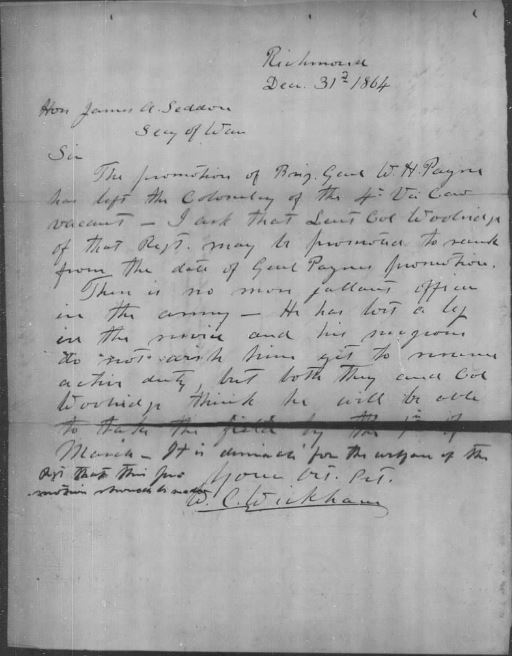 Richmond
Dec. 31st 1864
Hon James A. Seddon
Secy of War
Sir
The promotion of Brig. Genl W. H. Payne
has left the Colonelcy of the 4th Va Cav
vacant — I ask that Lieut Col Wooldridge
of that Regt. may be promoted to rank
from the date of Genl Paynes promotion.
There is no more gallant officer
in the army — He has lost a leg
in the service and his surgeons
do not wish him yet to resume
active duty, but both they and Col
Wooldridge think he will be able
to take the field by the 1st of
March — It is for the welfare of the
Regt that this pro
motion should be made
Your Obt. Svt.
W. C. Wickham